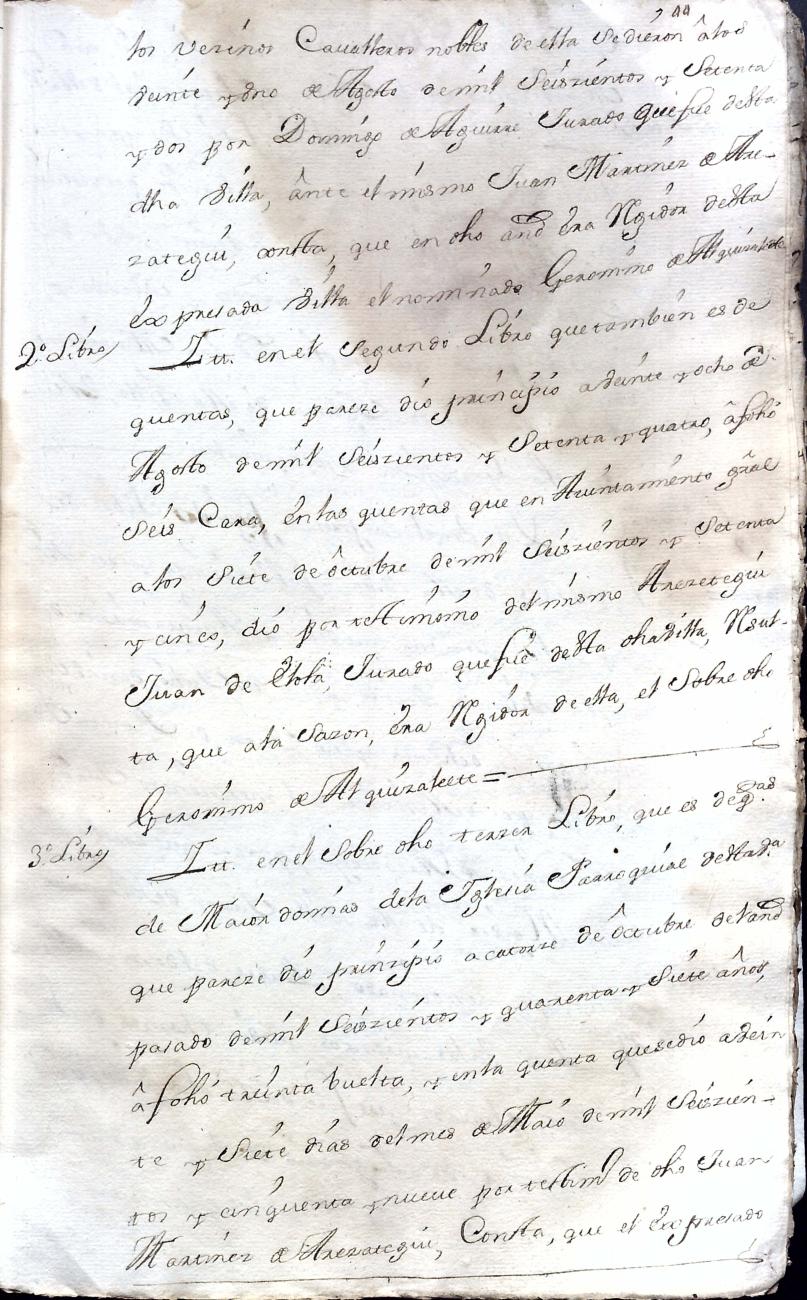 44
los vezinos Cavalleros nobles de ella se dieron â los
veinte y dno de Agosto de mil Seiszientos y Setenta
y dos por Domingo de Aguirre Jurado que fue desta
dha Villa, ânte el mismo Juan Martinez de Are-
zategui, consta, que en dho año êra Rgidor desta
êxpresada Villa el nominado Geronimo de Alquizalete
2º Libro
Itt. en el Segundo Libro que tambien es de
quentas, que pareze dio prinzipio a veinte y ocho de
Agosto de mil Seiszientos y Setenta y quatro, â folio
Seis Cara, ên las quentas que en Aiuntamiento gral
a los Siete de ôctubre de mil Seiszientos y Setenta
y cinco, dio por testimonio del mismo Arezetegui
Juan de Elola, Jurado que fue desta dha villa, Rsul-
ta, que ala Sazon, êra Rgidor de ella, el Sobre dho
Geronimo de Alquizalete =
3º Libro
Itt. en el Sobre dho terzer Libro, que es de qtas
de Maiordomias de la Iglesia Parroquial desta da
que pareze dio prinzipio a catorze de ôctubre del año
pasado de mil Seiszientos y quarenta y Siete años,
â folio treinta buelta, y en la quenta que se dio a vein
te y Siete dias del mes de Maio de mil Seiszien-
tos y cinquenta y nueve por testimo de dho Juan
Martinez de Arezategui, Consta, que el êxpresado